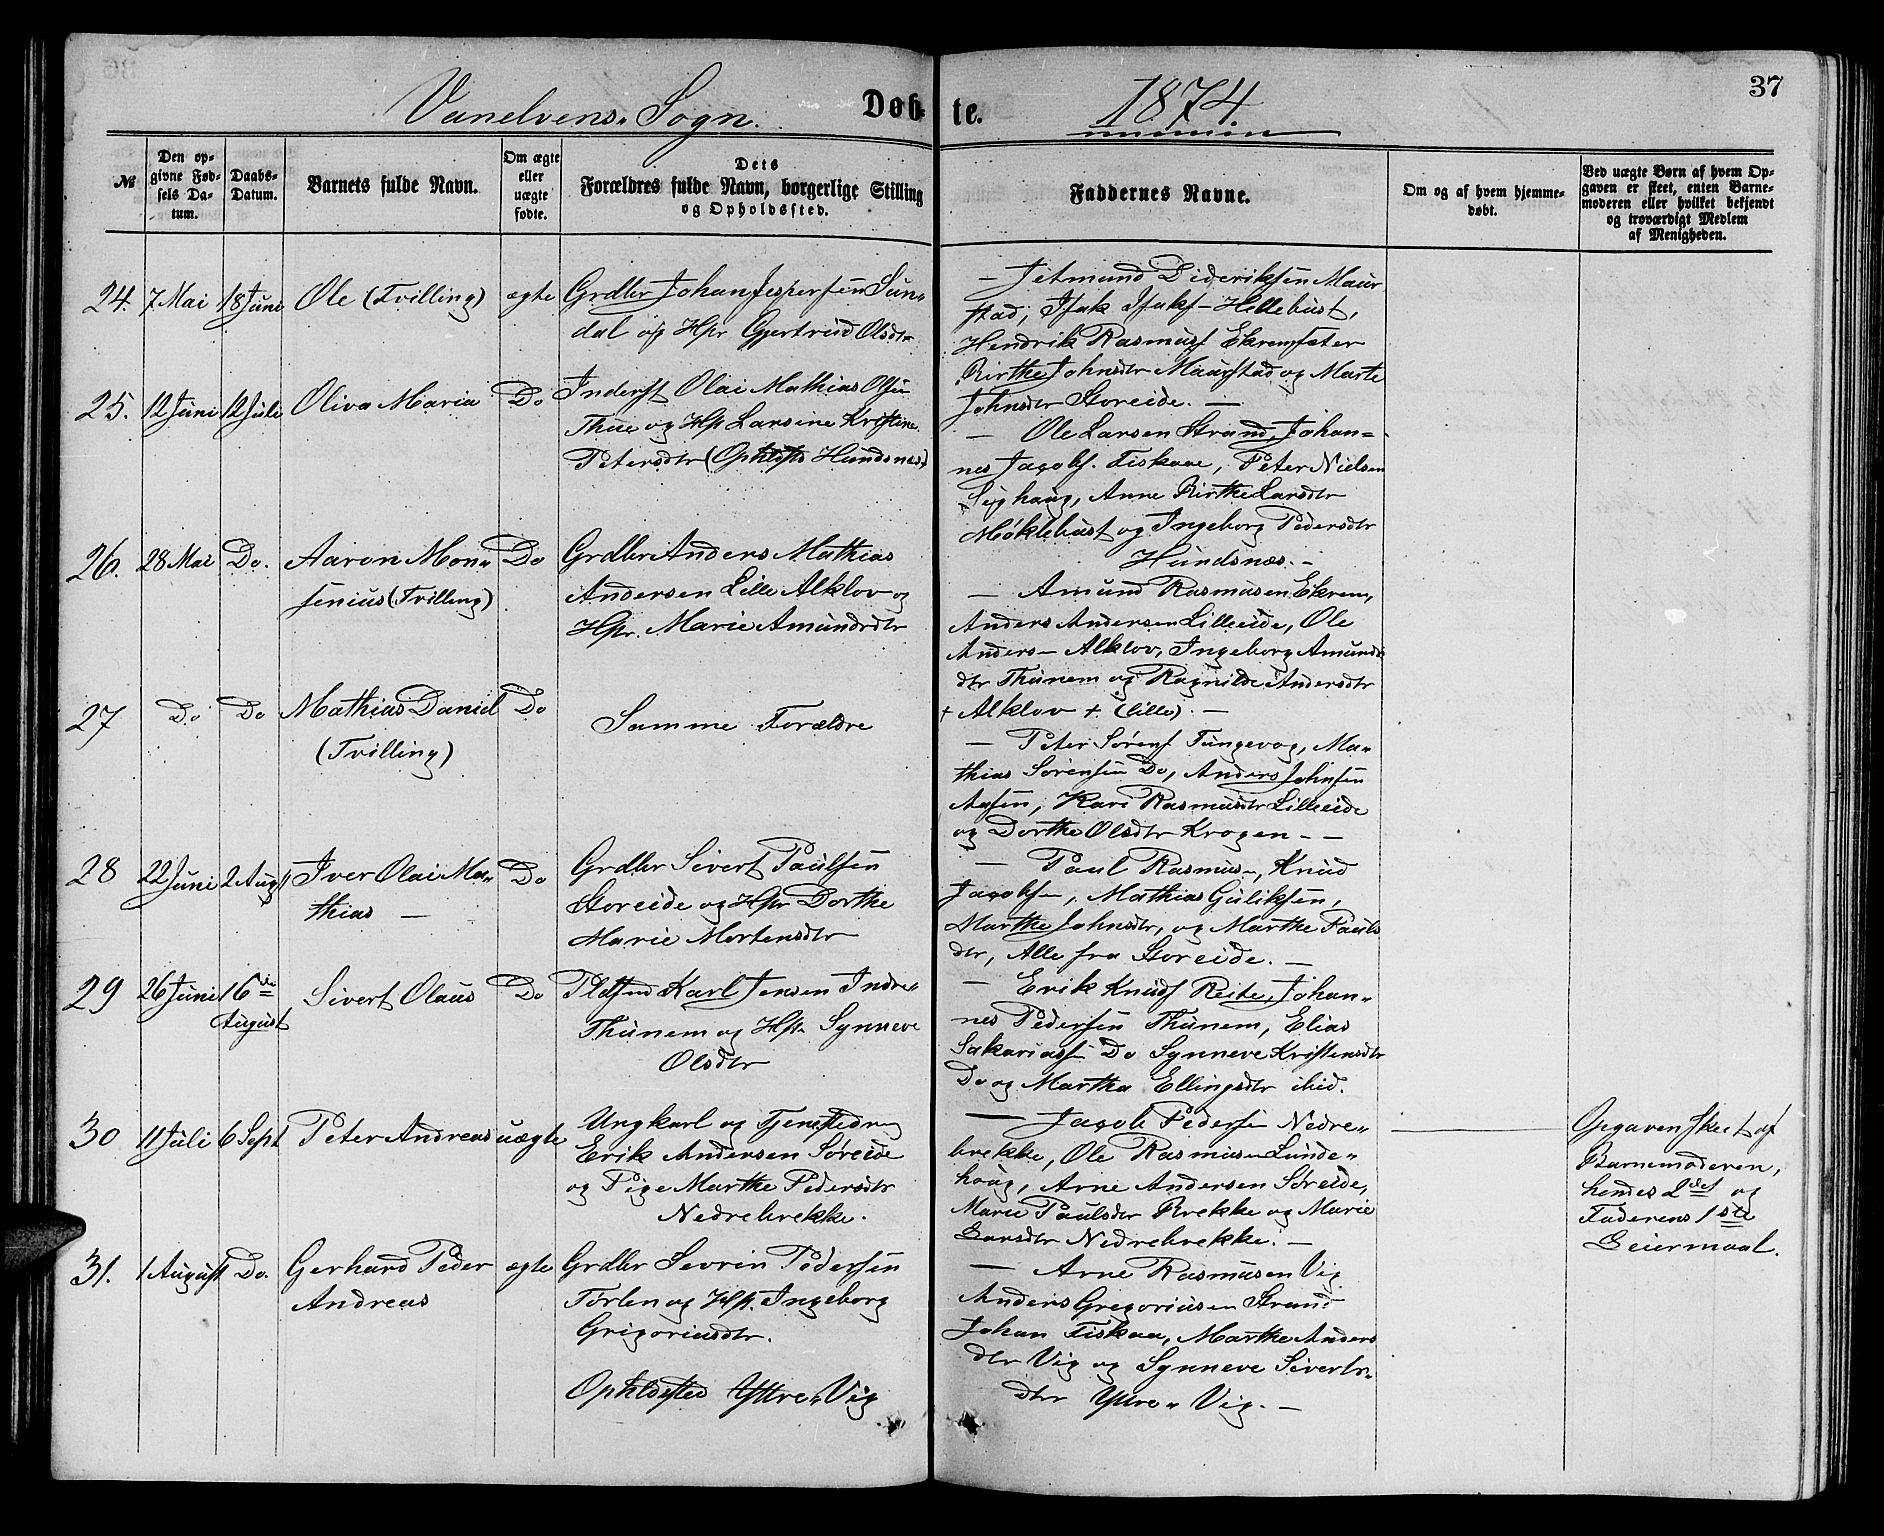 Vanelvens Sogn. Døbte. 1874. 37
№
Den opgivne Fødsels Datum.
Daabs-Datum.
Barnets fulde Navn.
Om ægte eller uægte fødte.
Dets Forældres fulde Navn, borgerlige Stilling og Opholdssted.
Faddernes Navne.
Om og af hvem hjemmedøbt.
Ved uægte Børn af hvem Opgaven er skeet, enten Barnemoderen eller hvilket bekjendt og troværdigt Medlem af Menigheden.
24. 7 Mai 18 Juni Ole (Tvilling) ægte
Grdbr Johan Jespersen Sun-
dal og Hst Gjertrud Olsdtr
— Jetmund Dideriksen Maur
stad, Isak Isaks- Hellebust,
Hendrik Rasmuss Ekremsæter
Birthe Johnsdtr Maurstad og Marte
Johnsdtr Storeide. —
25. 12 Juni 12 Juli Oliva Maria Do
Inderst Olai Mathias Olsen
Thue og Hst Larsine Kristine
Petersdtr (Ophldstd Hundsnes)
— Ole Larsen Strand, Johan=
nes Jacobs. Fiskaae, Peter Nielsen
Sighaug, Anne Birthe Larsdtr
Møklebust og Ingeborg Pedersdtr
Hundsnæs. -
26. 28 Mai Do. Aaron Mon-
senius (Tvilling) Do
Grdbr Anders Mathias
Andersen Lille Alklov og
Hst. Marie Amundsdtr
— Amund Rasmusen Ekrem,
Anders Andersen Lilleeide, Ole
Anders- Alklov, Ingeborg Amunds
dtr Thunem og Ragnilde Andersdtr
+ Alklov + (lille). —
27 Do Do Mathias Daniel
(Tvilling) Do
Samme Forældre
— Peter Sørens Tungevog, Ma-
thias Sørensen Do, Anders Johnsen
Aasen, Kari Rasmusdtr Lilleeide
og Dorthe Olsdtr Krogen - -
28 22 Juni 2 Augst Iver Olai Ma-
thias — Do
Grdbr Sivert Paulsen
Storeide og Hst Dorthe
Marie Mortensdtr
— Paul Rasmus-, Knud
Jacobsen, Mathias Guliksen,
Marthe Johnsdtr, og Marthe Pauls
dtr, Alle fra Storeide. —
29 26 Juni 16de
August Sivert Olaus Do
Pldsmd Karl Jensen Indre-
Thunem og Hst. Synneve
Olsdtr
— Erik Knuds Reite, Johan-
nes Pedersen Thunem, Elias
Sakariass Do Synneve Kristensdtr
Do og Martha Ellingsdtr ibid.
30 11 Juli 6 Sept Peter Andreas uægte
Ungkarl og Tjenestedreng
Erik Andersen Søreide
og Pige Marthe Pedersdtr
Nedrebrekke.
— Jacob Pedersen Nedre-
brekke, Ole Rasmusen Lunde-
houg, Arne Andersen Søreide,
Marie Paulsdtr Brekke og Marie
Larsdtr Nedrebrekke. —
Opgaven skeet af
Barnemoderen,
hendes 2det og
Faderens 1ste
Leiermaal.
31. 1 August Do. Gerhard Peder
Andreas ægte
Grdbr Sevrin Pedersen
Førlen og Hst. Ingeborg
Grigoriusdtr.
Ophldsted Yttre-Vig
— Arne Rasmusen Vig
Anders Gregoriusen Strand
Johan Fiskaa, Marthe Anders
dtr Vig og Synneve Siverts-
dtr Yttre-Vig. —